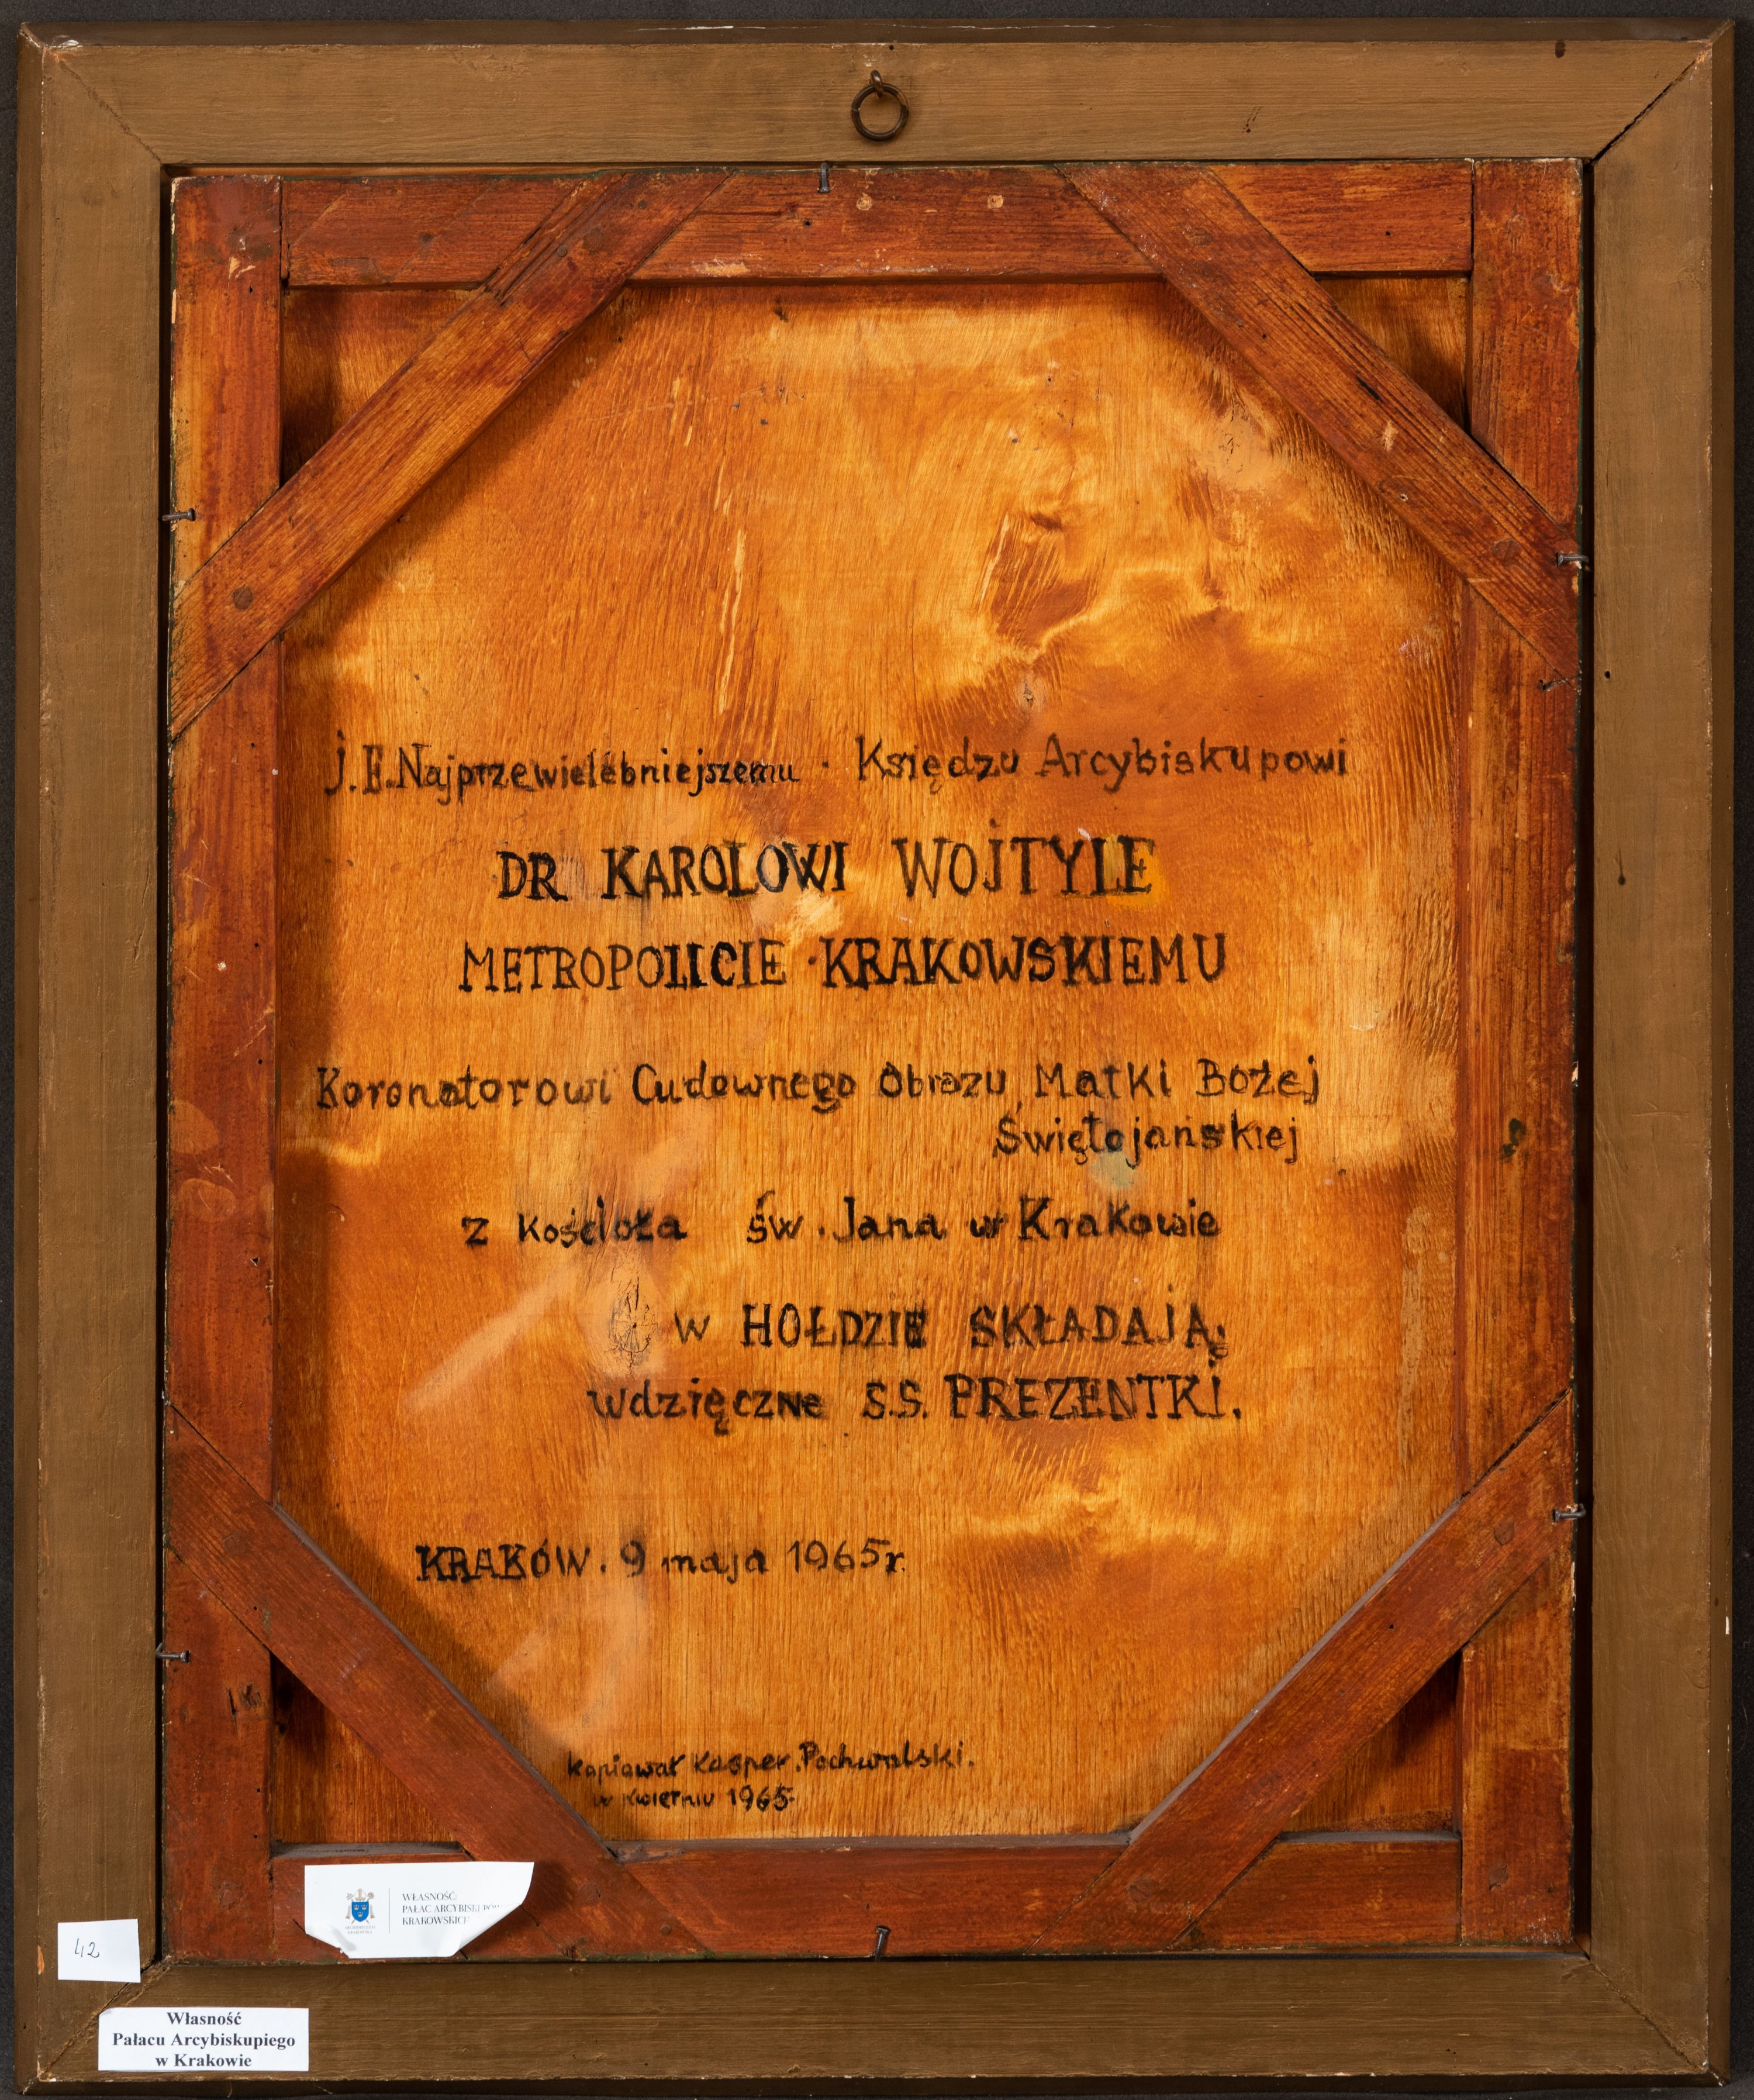 J.E. Najprzewielebniejszemu · Księdzu Arcybiskupowi
DR KAROLOWI WOJTYLE
METROPOLICIE · KRAKOWSKIEMU
Koronatorowi Cudownego Obrazu Matki Bożej
Świętojańskiej
z Kościoła św. Jana w Krakowie
w HOŁDZIE SKŁADAJĄ
wdzięczne S.S. PREZENTKI.
KRAKÓW. 9 maja 1965 r.
kopiował Kasper Pochwalski.
w kwietniu 1965
WŁASNOŚĆ:
PAŁAC ARCYBISKUPÓW
KRAKOWSKICH
42
Własność
Pałacu Arcybiskupiego
w Krakowie